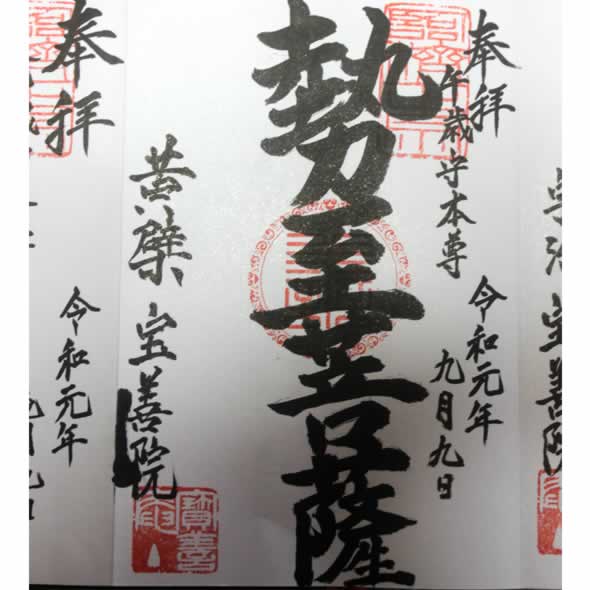 宝善院
奉拝
午歳守本尊
令和元年
九月九日
勢至菩薩
黄檗 宝善院
奉拝
令和元年
九月九日